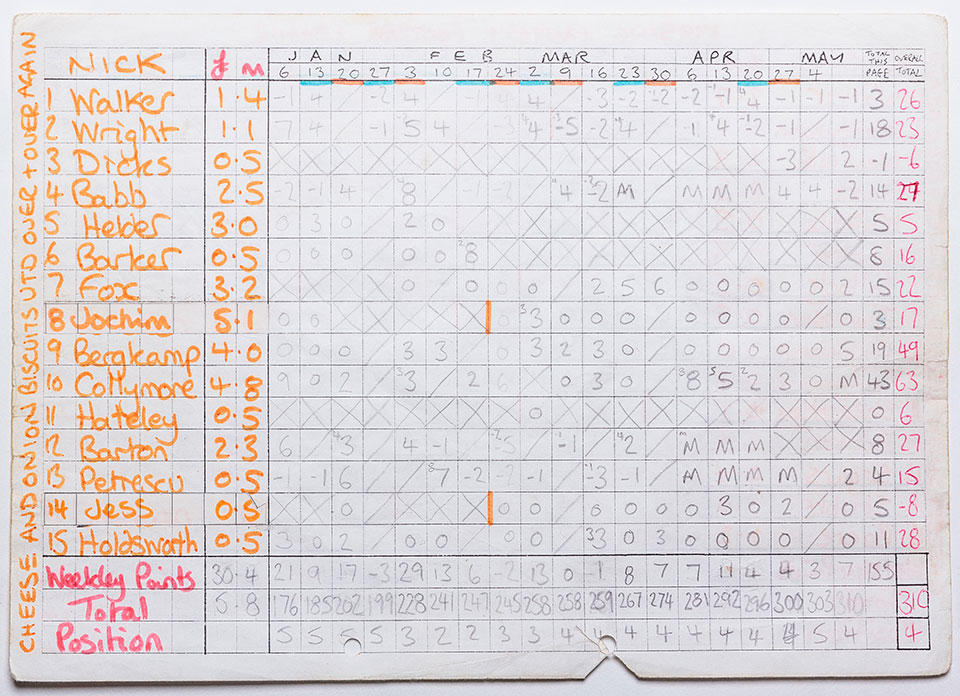 CHEESE AND ONION BISCUITS UTD OVER + OVER AGAIN
NICK £ M JAN FEB MAR APR MAY TOTAL THIS PAGE OVERALL TOTAL
6 13 20 27 3 10 17 24 2 9 16 23 30 6 13 20 27 4
1 Walker 1.4 -1 4 / -2 4 4 / -3 -2 -2 -2 -1 4 -1 -1 -1 3 26
2 Wright 1.1 7 4 / -1 5 4 4 -5 -2 4 / -1 4 -2 -1 / -1 18 23
3 Dicks 0.5 X X X X X X X X X X X X X X X X -3 / 2 -1 -6
4 Babb 2.5 -2 -1 4 / 8 -1 4 -2 M / M M M 4 4 -2 14 27
5 Helder 3.0 0 3 0 / 2 0 X X X X X X X X X X 5 5
6 Barker 0.5 0 0 0 / 0 0 8 X X X X X X X X X X X X 8 16
7 Fox 3.2 X X X X 0 0 0 / 2 5 6 0 0 0 0 0 2 15 22
8 Jochim 5.1 0 0 X X X X X 0 3 0 0 0 / 0 0 0 0 / 0 3 17
9 Bergkamp 4.0 0 0 0 / 3 3 0 3 2 3 0 / 0 0 0 0 0 5 19 49
10 Collymore 4.8 9 0 2 / 3 2 0 3 0 / 8 5 2 3 0 M 43 63
11 Hateley 0.5 X X X X X X X X 0 X X X X X X X X X X 0 6
12 Barton 2.3 6 / 3 / 4 -1 -1 / 2 M M M X X X 8 27
13 Petrescu 0.5 -1 -1 6 / 7 -2 -2 -1 / -3 -1 / M M M M / 2 4 15
14 Jess 0.5 X X 0 X X X X 0 0 / 0 0 0 0 3 0 2 / 0 5 -8
15 Holdsworth 0.5 3 0 2 / 0 0 0 0 / 3 0 3 0 0 0 0 / 0 11 28
Weekley Points 30.4 21 9 17 -3 29 13 6 -2 13 0 1 8 7 7 11 4 4 3 7 155
Total 5.8 176 185 202 199 228 241 247 245 258 258 259 267 274 281 292 296 300 303 310 310
Position 5 5 5 5 3 2 2 3 3 4 4 4 4 4 4 4 4 5 4 4